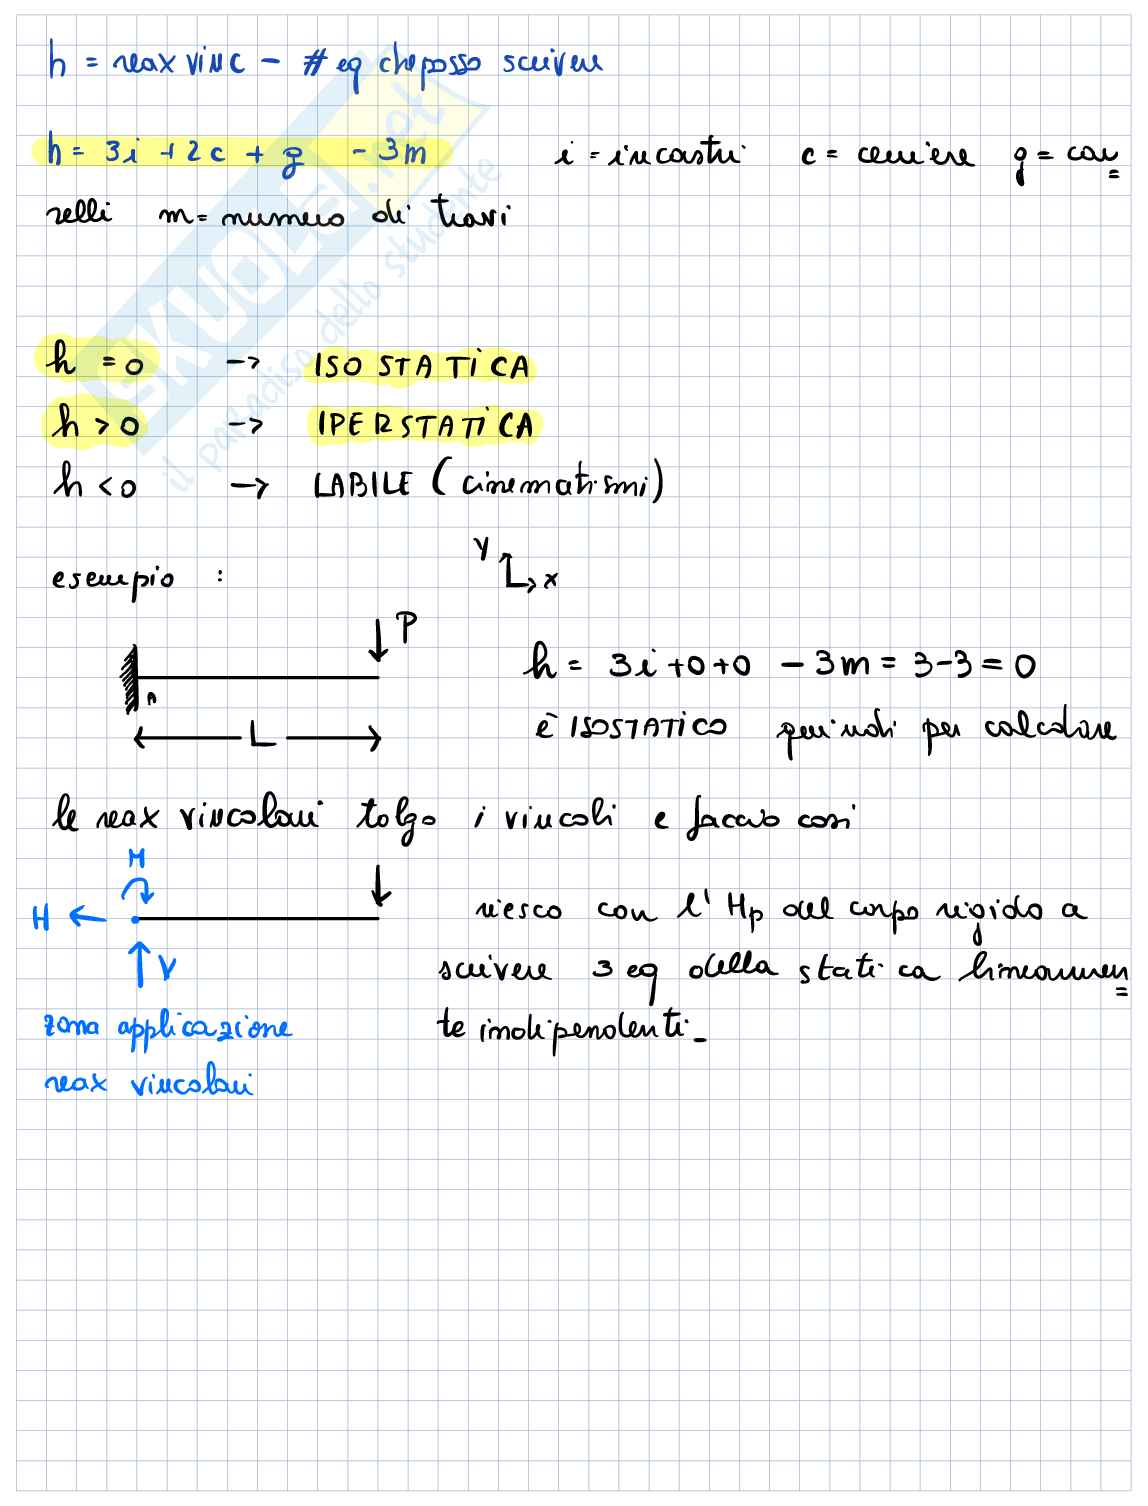 h = reax vinc - # eq che posso scrivere
h = 3i + 2c + g - 3m i = incastri c = cerniere g = car=
relli m = numero di travi
h = 0 -> ISOSTATICA
h > 0 -> IPERSTATICA
h < 0 -> LABILE (cinematismi)
esempio :
Y
x
P
A
L
h = 3i + 0 + 0 - 3m = 3 - 3 = 0
è ISOSTATICO quindi per calcolare
le reax vincolari tolgo i vincoli e faccio così
M
H
V
zona applicazione
reax vincolari
riesco con l'Hp del corpo rigido a
scrivere 3 eq della statica linearmen=
te indipendenti.
SKUOLA.net
il paradiso dello studente